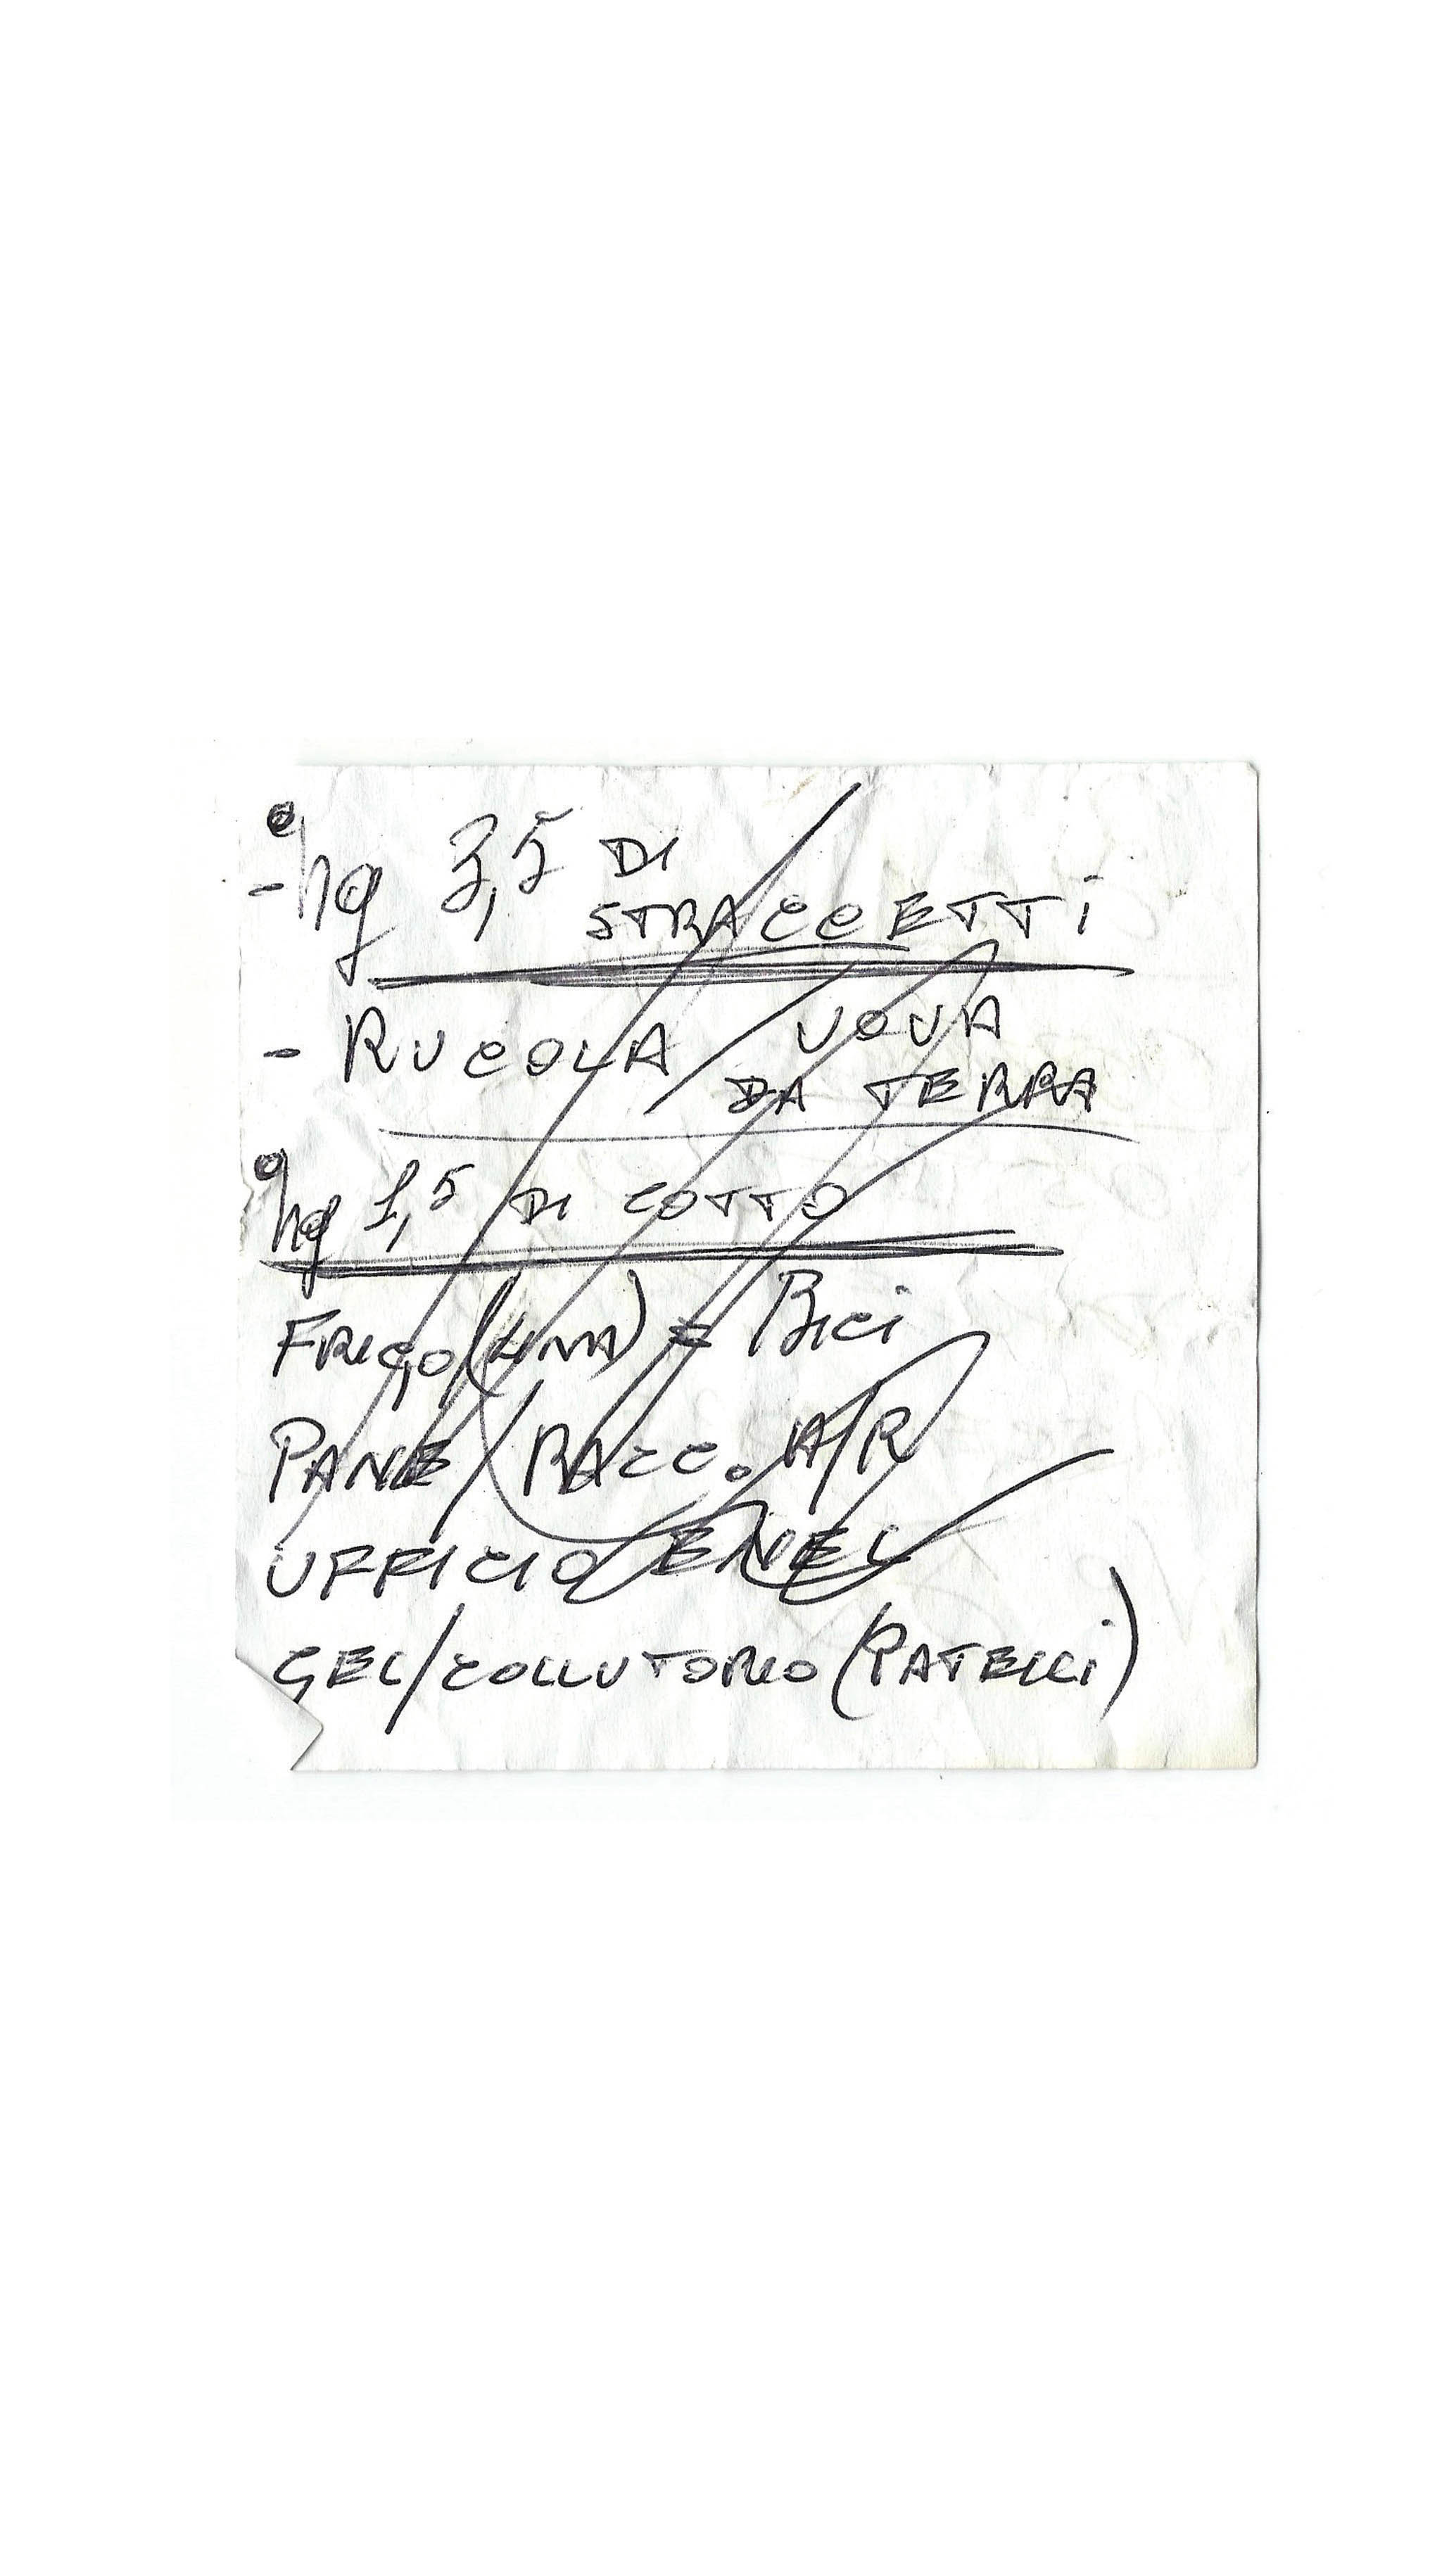 - hg 3,5 DI
STRACCETTI
- RUCOLA / UOVA
DA TERRA
hg 1,5 DI COTTO
FRIGO (LINA) E BICI
PANE / RACC. A/R
UFFICIO ENEL
GEL/COLLUTORIO (PATELLI)